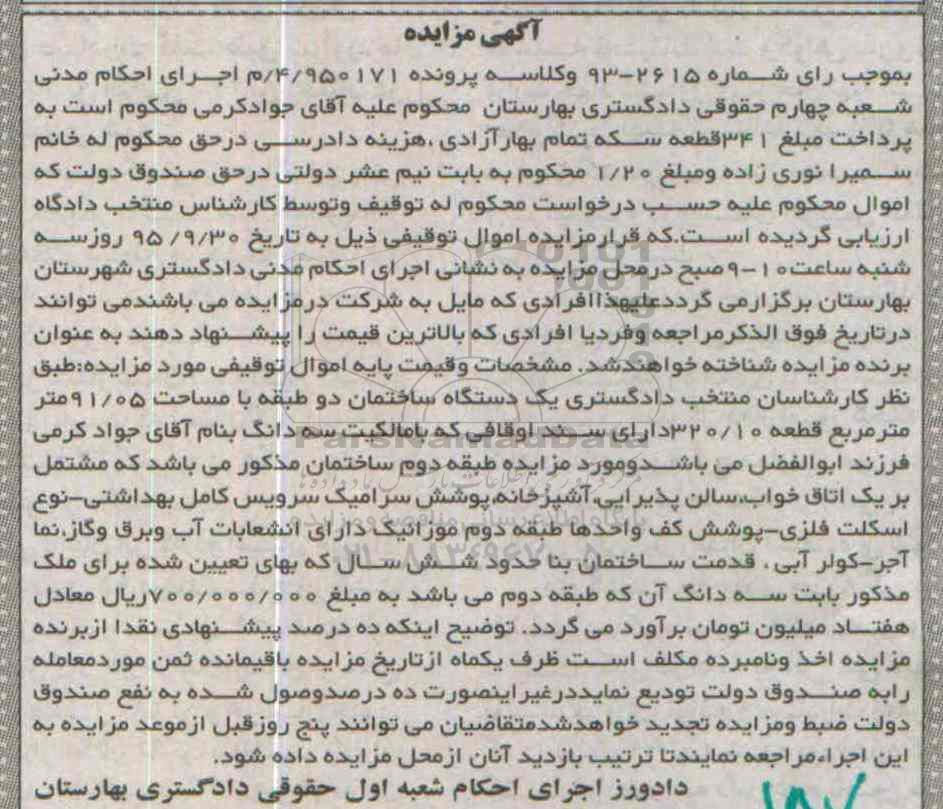 آگهی مزایده
بموجب رای شماره ۲۶۱۵-۹۳ وکلاسه پرونده ۴/۹۵۰۱۷۱/م اجرای احکام مدنی
شعبه چهارم حقوقی دادگستری بهارستان محکوم علیه آقای جوادکرمی محکوم است به
پرداخت مبلغ ۳۴۱قطعه سکه تمام بهارآزادی ،هزینه دادرسی درحق محکوم له خانم
سمیرا نوری زاده ومبلغ ۱/۲۰ محکوم به بابت نیم عشر دولتی درحق صندوق دولت که
اموال محکوم علیه حسب درخواست محکوم له توقیف وتوسط کارشناس منتخب دادگاه
ارزیابی گردیده است.که قرارمزایده اموال توقیفی ذیل به تاریخ ۹۵/۹/۳۰ روزسه
شنبه ساعت۱۰-۹صبح درمحل مزایده به نشانی اجرای احکام مدنی دادگستری شهرستان
بهارستان برگزارمی گرددعلیهذاافرادی که مایل به شرکت درمزایده می باشندمی توانند
درتاریخ فوق الذکرمراجعه وفردیا افرادی که بالاترین قیمت را پیشنهاد دهند به عنوان
برنده مزایده شناخته خواهندشد. مشخصات وقیمت پایه اموال توقیفی مورد مزایده:طبق
نظر کارشناسان منتخب دادگستری یک دستگاه ساختمان دو طبقه با مساحت ۹۱/۰۵متر
مترمربع قطعه ۳۲۰/۱۰دارای سند اوقافی که بامالکیت سه دانگ بنام آقای جواد کرمی
فرزند ابوالفضل می باشدومورد مزایده طبقه دوم ساختمان مذکور می باشد که مشتمل
بر یک اتاق خواب،سالن پذیرایی،آشپزخانه،پوشش سرامیک سرویس کامل بهداشتی-نوع
اسکلت فلزی-پوشش کف واحدها طبقه دوم موزائیک دارای انشعابات آب وبرق وگاز،نما
آجر-کولر آبی ، قدمت ساختمان بنا حدود شش سال که بهای تعیین شده برای ملک
مذکور بابت سه دانگ آن که طبقه دوم می باشد به مبلغ ۷۰۰/۰۰۰/۰۰۰ریال معادل
هفتاد میلیون تومان برآورد می گردد. توضیح اینکه ده درصد پیشنهادی نقدا ازبرنده
مزایده اخذ ونامبرده مکلف است ظرف یکماه ازتاریخ مزایده باقیمانده ثمن موردمعامله
رابه صندوق دولت تودیع نمایددرغیراینصورت ده درصدوصول شده به نفع صندوق
دولت ضبط ومزایده تجدید خواهدشدمتقاضیان می توانند پنج روزقبل ازموعد مزایده به
این اجراءمراجعه نمایندتا ترتیب بازدید آنان ازمحل مزایده داده شود.
دادورز اجرای احکام شعبه اول حقوقی دادگستری بهارستان